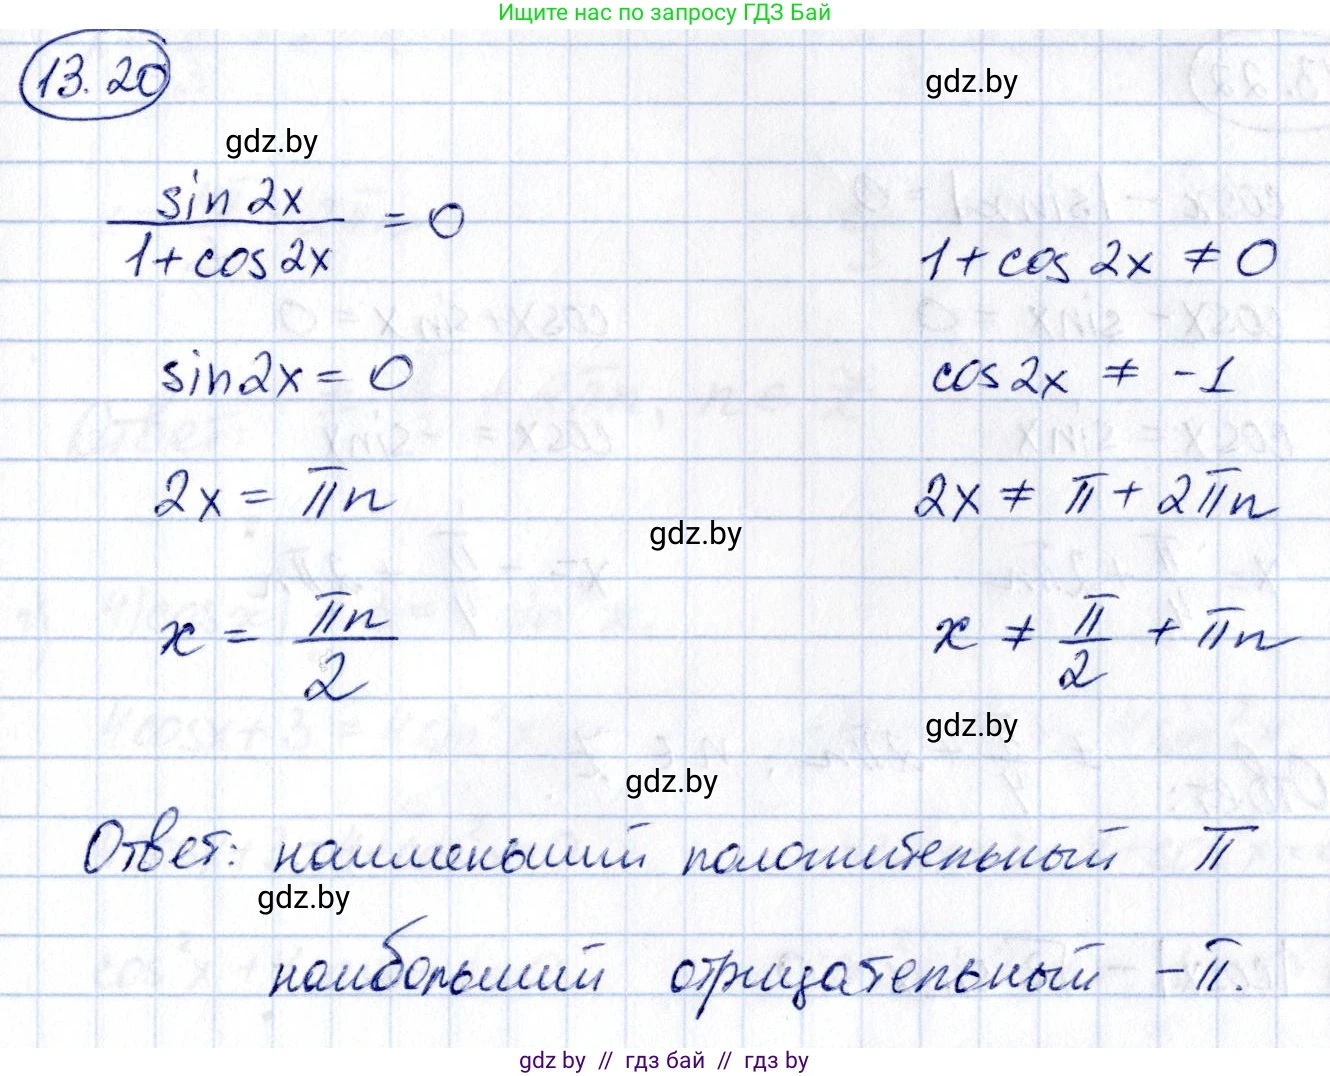 Ищите нас по запросу ГДЗ Бай
13.20
gdz.by
gdz.by
sin 2x / 1 + cos 2x = 0
1 + cos 2x ≠ 0
sin 2x = 0
cos 2x ≠ -1
2x = πn
2x ≠ π + 2πn
gdz.by
x = πn / 2
x ≠ π / 2 + πn
gdz.by
gdz.by
Ответ: наименьший положительный π
gdz.by
наибольший отрицательный -π.
gdz by // гдз бай // гдз by